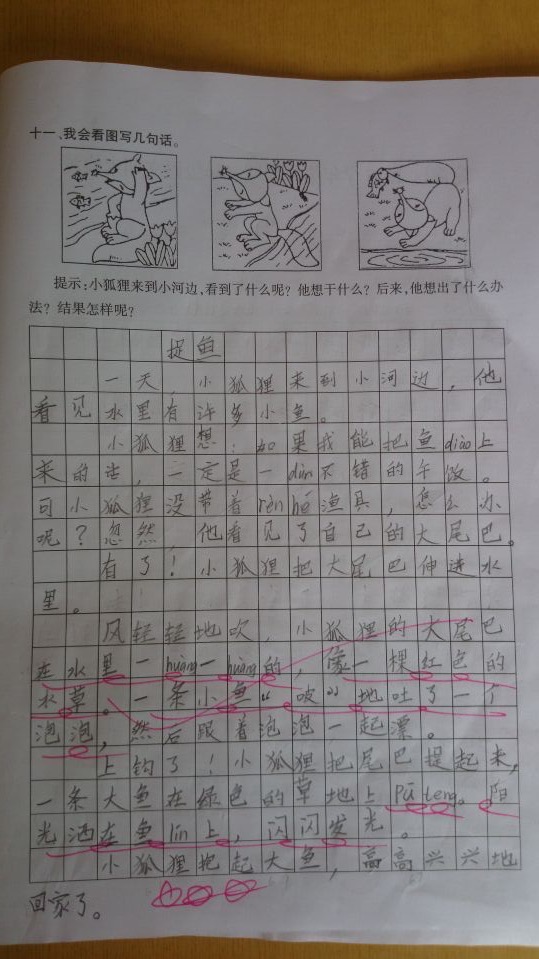 十一、我会看图写几句话。
提示:小狐狸来到小河边,看到了什么呢?他想干什么?后来,他想出了什么办
法?结果怎样呢?
捉鱼
一天,小狐狸来到小河边,他
看见水里有许多小鱼。
小狐狸想:如果我能把鱼diào上
来的话,一定是一dùn不错的午饭。
可小狐狸没带着rèn hé渔具,怎么办
呢?忽然,他看见了自己的大尾巴。
有了!小狐狸把大尾巴伸进水
里。
风轻轻地吹,小狐狸的大尾巴
在水里一huàng一huàng的,像一棵红色的
水草。一条小鱼“啵”地吐了一个
泡泡,然后跟着泡泡一起漂。
上钩了!小狐狸把尾巴提起来,
一条大鱼在绿色的草地上pū teng。阳
光洒在鱼lín上,闪闪发光。
小狐狸抱起大鱼,高高兴兴地
回家了。